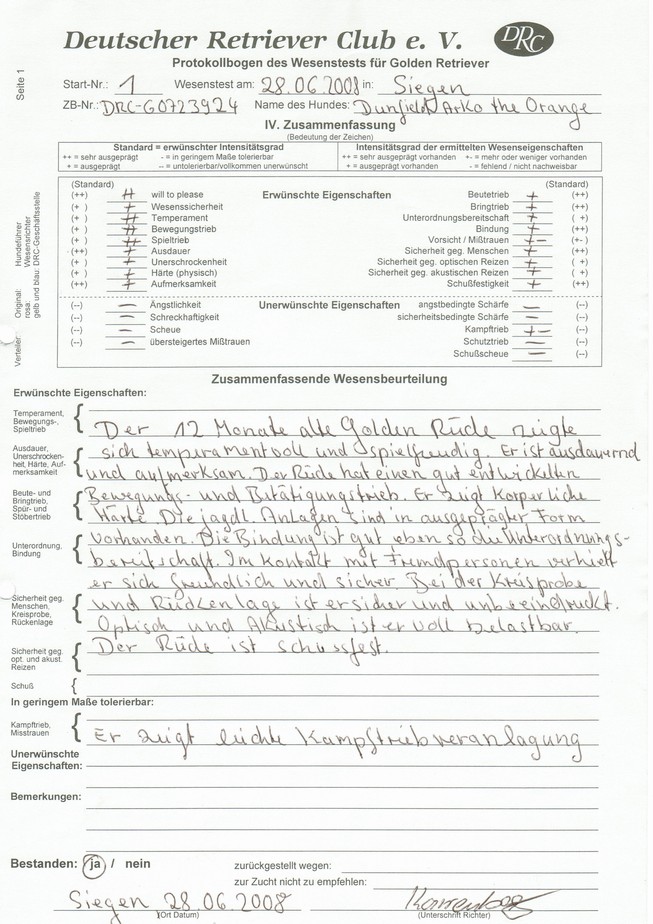 Deutscher Retriever Club e. V. DRC
Protokollbogen des Wesenstests für Golden Retriever
Seite 1
Start-Nr.: 1 Wesenstest am: 28.06.2008 in: Siegen
ZB-Nr.: DRC-G0723924 Name des Hundes: Dunfield Arko the Orange
IV. Zusammenfassung
(Bedeutung der Zeichen)
Standard = erwünschter Intensitätsgrad Intensitätsgrad der ermittelten Wesenseigenschaften
++ = sehr ausgeprägt - = in geringem Maße tolerierbar ++ = sehr ausgeprägt vorhanden +- = mehr oder weniger vorhanden
+ = ausgeprägt -- = untolerierbar/vollkommen unerwünscht + = ausgeprägt vorhanden - = fehlend / nicht nachweisbar
(Standard) (Standard)
(++) ++ will to please Erwünschte Eigenschaften Beutetrieb + (++)
(+ ) + Wesenssicherheit Bringtrieb + (++)
(+ ) ++ Temperament Unterordnungsbereitschaft + ( +)
(+ ) ++ Bewegungstrieb Bindung + (++)
(+ ) ++ Spieltrieb Vorsicht / Mißtrauen +- (+-)
(++) + Ausdauer Sicherheit geg. Menschen + (++)
(+ ) + Unerschrockenheit Sicherheit geg. optischen Reizen + ( +)
(+ ) + Härte (physisch) Sicherheit geg. akustischen Reizen + ( +)
(++) ++ Aufmerksamkeit Schußfestigkeit + (++)
(--) - Ängstlichkeit Unerwünschte Eigenschaften angstbedingte Schärfe - (--)
(--) - Schreckhaftigkeit sicherheitsbedingte Schärfe - (--)
(--) - Scheue Kampftrieb +- (--)
(--) - übersteigertes Mißtrauen Schutztrieb - (--)
Schußscheue - (--)
Verteiler: Original: Hundeführer
rosa: Wesensrichter
gelb und blau: DRC-Geschäftsstelle
Zusammenfassende Wesensbeurteilung
Erwünschte Eigenschaften:
Temperament,
Bewegungs-,
Spieltrieb
Der 12 Monate alte Golden Rüde zeigte
Ausdauer,
Unerschrocken-
heit, Härte, Auf-
merksamkeit
sich temperamentvoll und spielfreudig. Er ist ausdauernd
und aufmerksam. Der Rüde hat einen gut entwickelten
Beute- und
Bringtrieb,
Spür- und
Stöbertrieb
Bewegungs- und Betätigungstrieb. Er zeigt körperliche
Härte. Die jagdl. Anlagen sind in ausgeprägter Form
Unterordnung,
Bindung
vorhanden. Die Bindung ist gut eben so die Unterordnungs-
bereitschaft. Im Kontakt mit Fremdpersonen verhielt
er sich freundlich und sicher. Bei der Kreisprobe
Sicherheit geg.
Menschen,
Kreisprobe,
Rückenlage
und Rückenlage ist er sicher und unbeeindruckt.
Optisch und Akustisch ist er voll belastbar.
Sicherheit geg.
opt. und akust.
Reizen
Der Rüde ist schussfest.
Schuß
In geringem Maße tolerierbar:
Kampftrieb,
Misstrauen
Er zeigt leichte Kampftriebveranlagung
Unerwünschte
Eigenschaften:
Bemerkungen:
Bestanden: ja / nein zurückgestellt wegen:
zur Zucht nicht zu empfehlen:
Siegen 28.06.2008
(Ort Datum) (Unterschrift Richter)